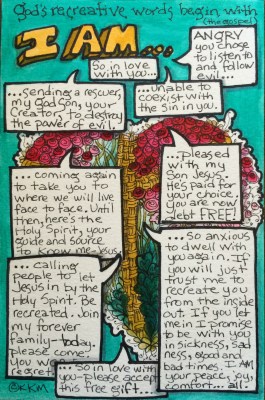 God's recreative words begin with
(the gospel)
I AM...
So in love
with you...
ANGRY
you chose
to listen to
and follow
evil...
...sending a rescuer,
my God Son, your
Creator, to destroy
the power of evil.
...Unable to
coexist with
the sin in you.
...pleased
with my
Son Jesus.
He's paid for
your choice.
You are now
debt FREE!
... coming again
to take you to
where we will live
face to face. Until
then, here's the
Holy Spirit, your
guide and source
to know me-Jesus.
... so anxious
to dwell with
you again. If
you will just
trust me to
recreate you
from the inside
out. If you let
me in I promise
to be with you
in sickness, sad
ness, good and
bad times. I AM
your peace, joy,
comfort... all!
... calling
people to let
Jesus in by the
Holy Spirit. Be
recreated. Join
my forever
family-today.
please come!
you won't
regret it
...So in love with
you-please accept
this free gift...
©KKM